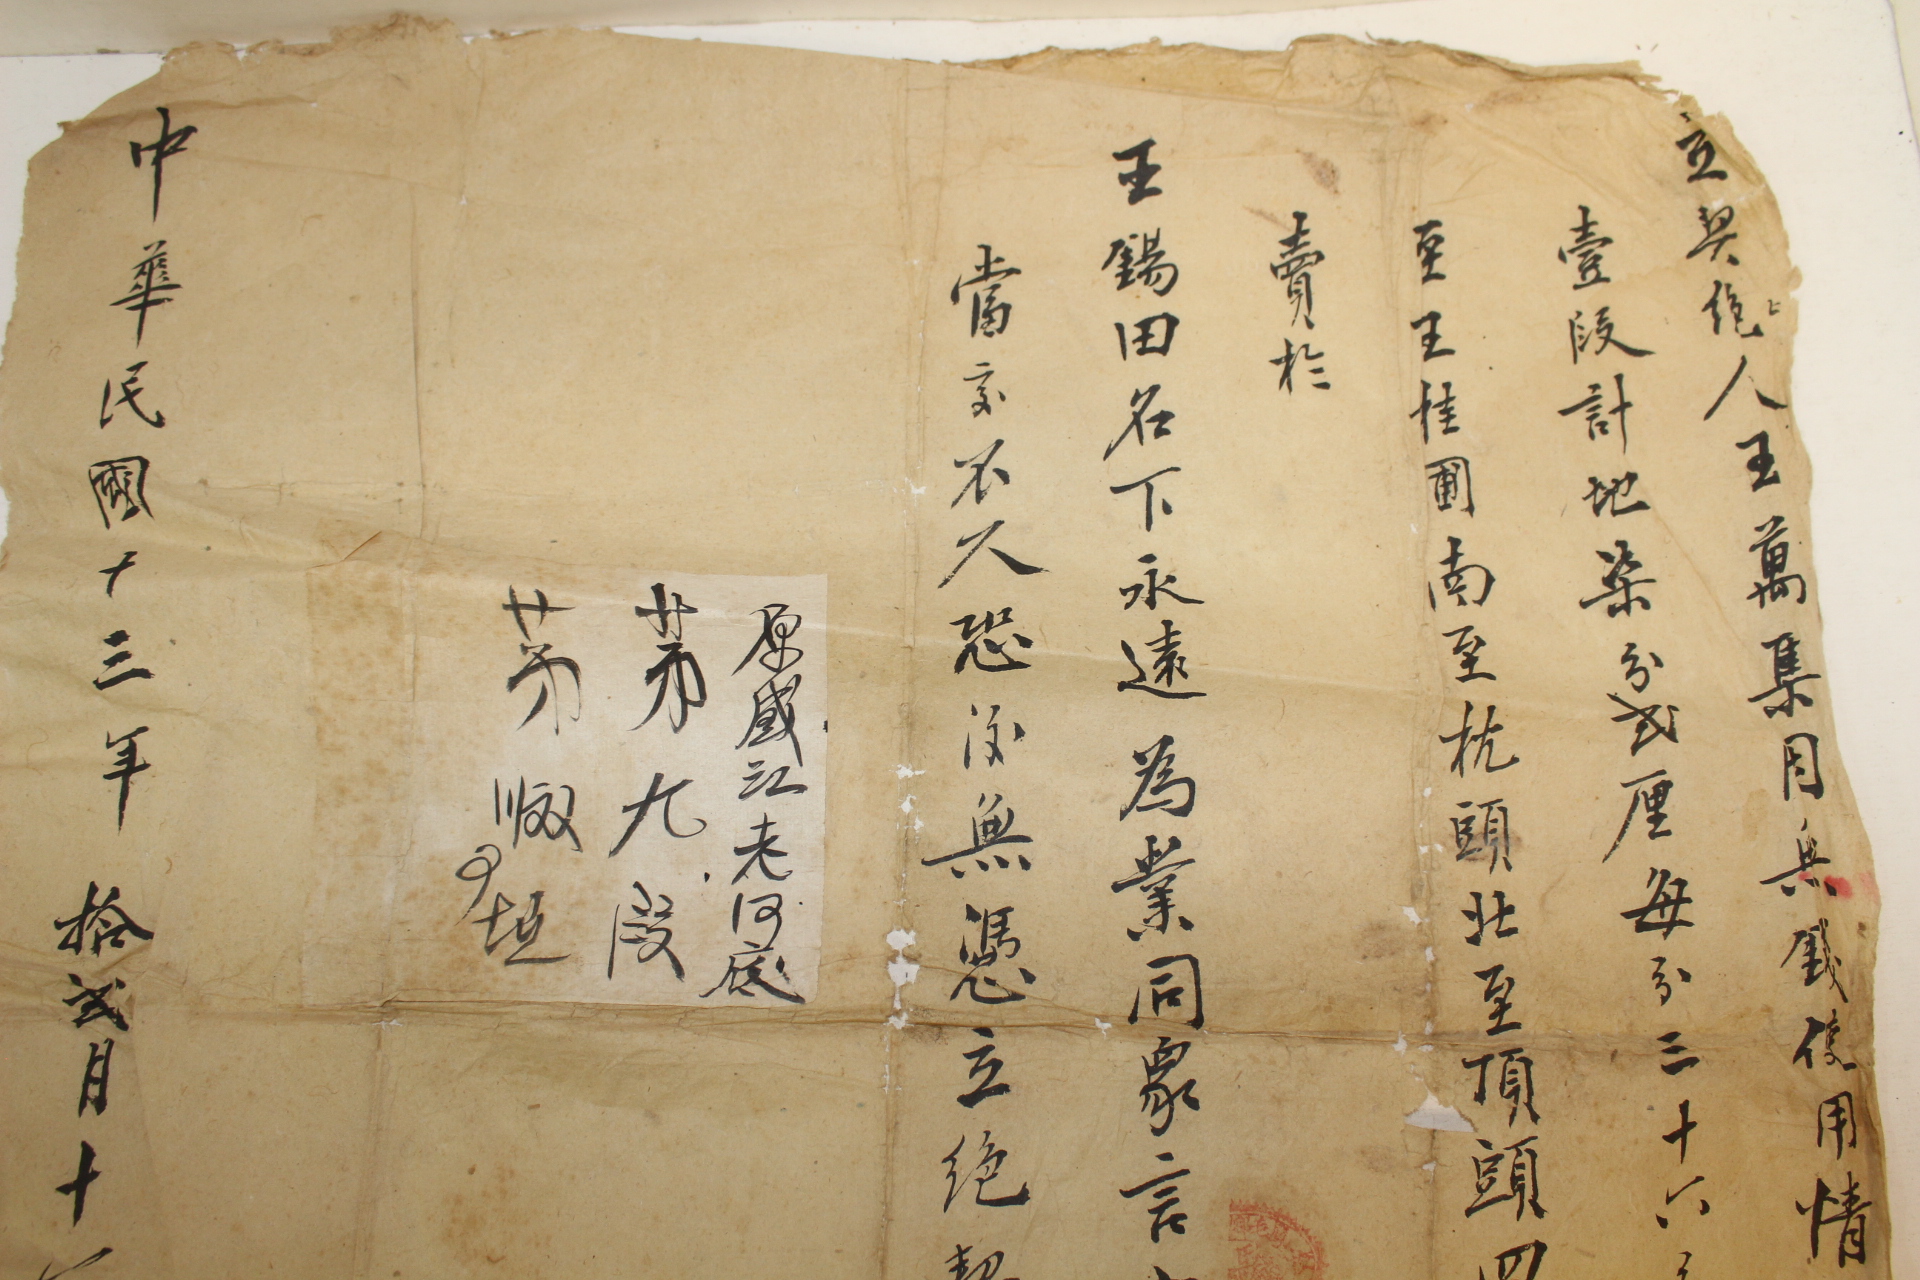 立契絕人王萬集因無錢使用情
壹段計地柒分弍厘每分三十六
至王桂圃南至枕頭北至頂頭四
賣於
王錫田名下永遠為業同衆言
當交不欠恐後無憑立絕契
原盛江老河底
第九段
第 垣
中華民國十三年 拾弍月十